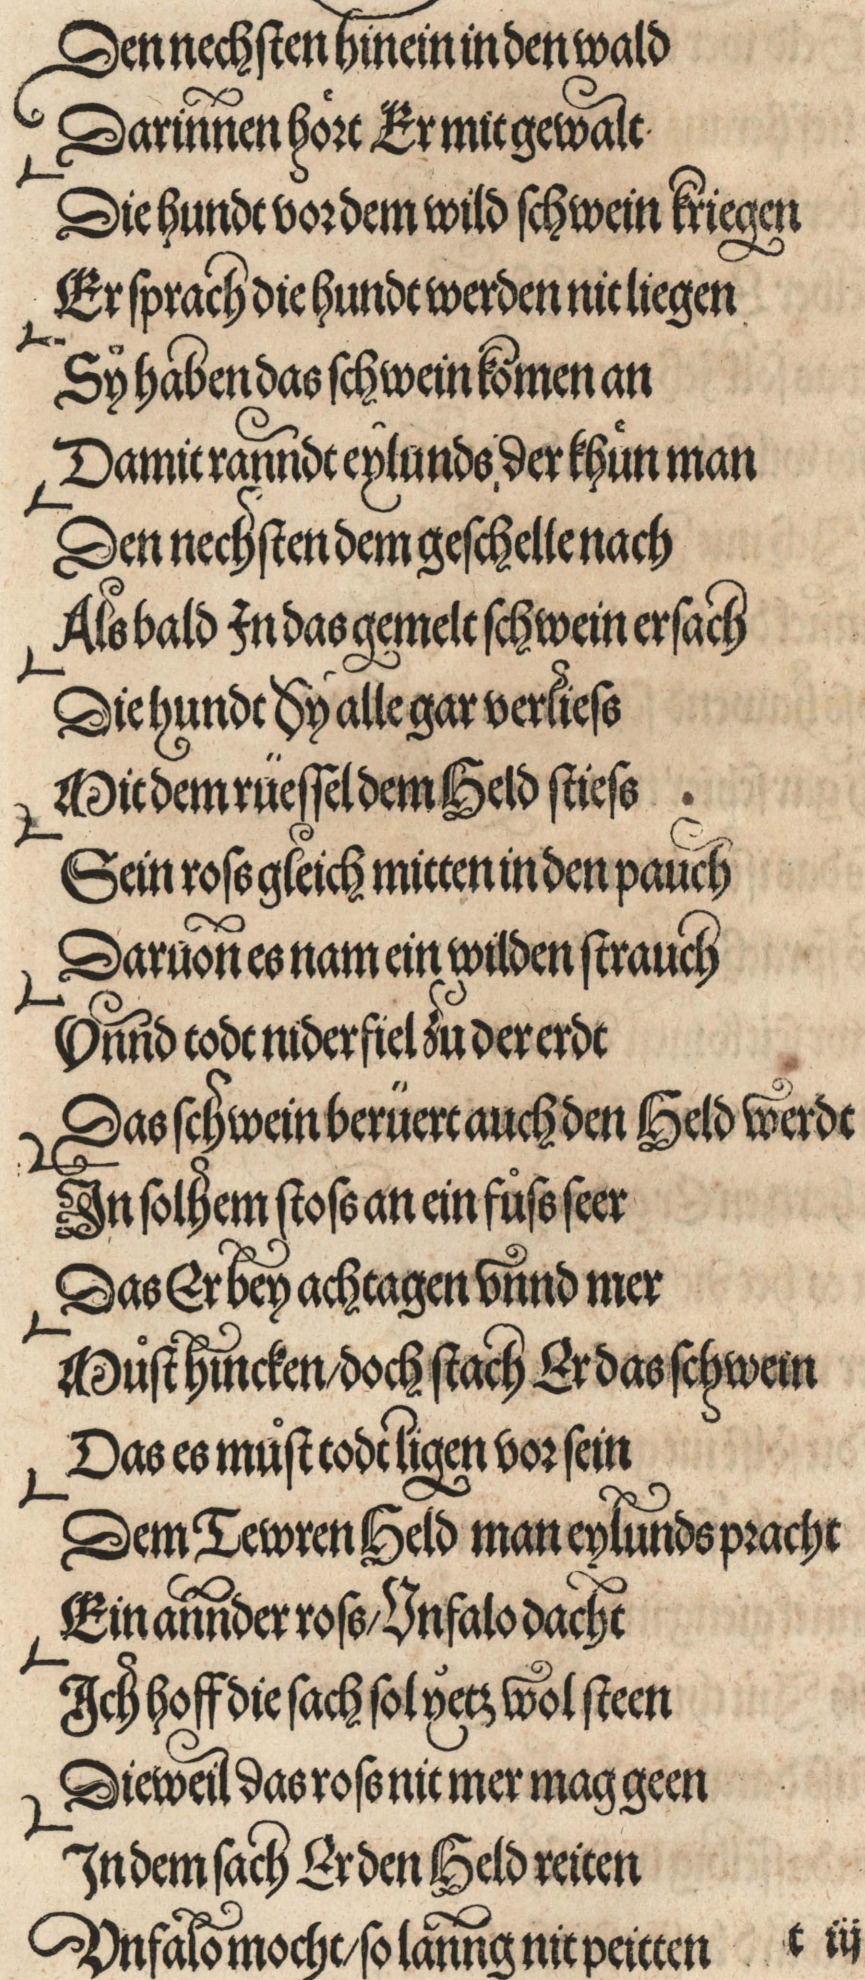 Den nechsten hinein in den wald
Darinnen hört Er mit gewalt
Die hundt vor dem wild schwein kriegen
Er sprach die hundt werden nit liegen
Sÿ haben das schwein komen an
Damit ranndt eylunds der khün man
Den nechsten dem geschelle nach
Als bald In das gemelt schwein ersach
Die hundt Sÿ alle gar verliess
Mit dem rüessel dem Held stiess
Sein ross gleich mitten in den pauch
Daruon es nam ein wilden strauch
Vnnd todt nider fiel zu der erdt
Das schwein berüert auch den Held werdt
In solhem stoss an ein fůss seer
Das Er bey achtagen vnnd mer
Můst hincken/doch stach Er das schwein
Das es můst todt ligen vor sein
Dem Tewren Held man eylunds pracht
Ein annder ross/Vnfalo dacht
Ich hoff die sach sol yetz wol steen
Dieweil das ross nit mer mag geen
In dem sach Er den Held reiten
Vnfalo mocht/so lanng nit peitten t iij